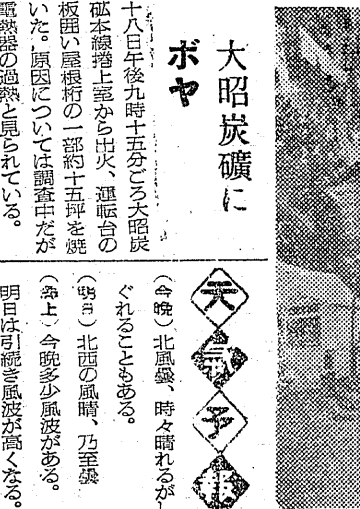 大昭炭礦に
ボヤ
十八日午後九時十五分ごろ大昭炭
砿本線捲上室から出火、運転台の
板囲い屋根桁の一部約十五坪を焼
いた。原因については調査中だが
電熱器の過熱と見られている。
天氣予報
(今晩)北風曇、時々晴れるがし
ぐれることもある。
(明日)北西の風晴、乃至曇
(海上)今晩多少風波がある。
明日は引続き風波が高くなる。